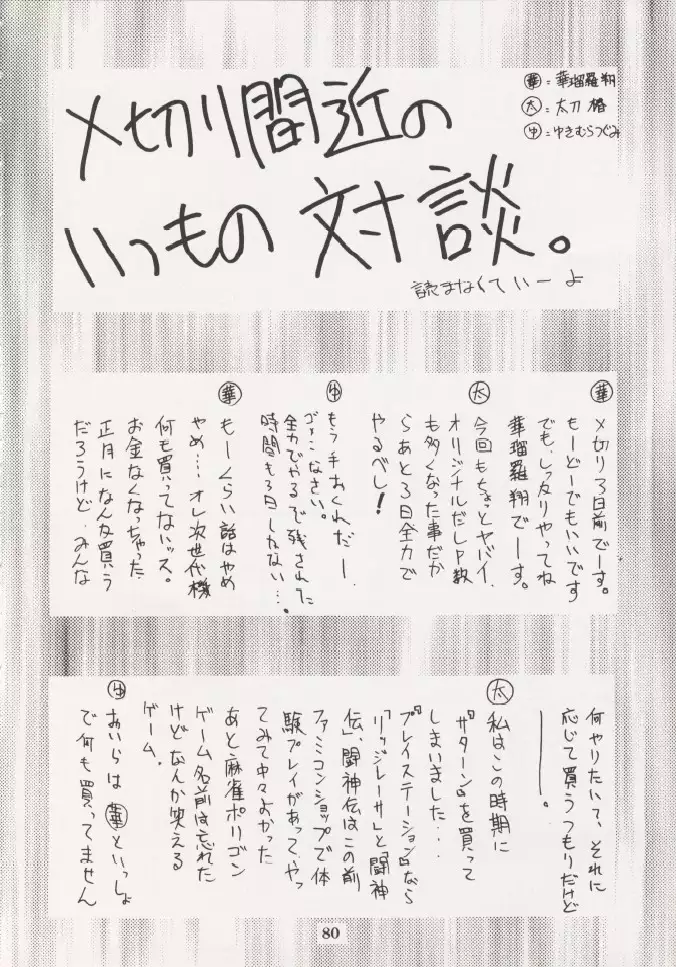 〆切り間近の
いつもの対談。
読まなくていーよ
華=華瑠羅翔
太=太刀椿
ゆ=ゆきむらつぐみ
華
〆切り3日前でーす。
もーどーでもいいです
でも、しっかりやってね
華瑠羅翔でーす。
太
今回もちょっとヤバイ、
オリジナルだしP数
も多くなった事だか
らあと3日全力で
やるべし!
ゆ
もう手おくれだー
ごめんなさい。
全力でやるで残された
時間も3日しかない…。
華
もーくらい話はやめ
やめ…オレ次世代機
何も買ってないッス。
お金なくなっちゃった
正月になんか買う
だろうけど、みんな
何やりたいて、それに
応じて買うつもりだけど
――。
太
私はこの時期に
『サターン』を買って
しまいました…
『プレイステーション』なら
『リッジレーサ』と『闘神
伝』、闘神伝はこの前
ファミコンショップで体
験プレイがあって、やっ
てみて中々よかった
あと麻雀ポリゴン
ゲーム名前は忘れた
けどなんか笑える
ゲーム。
ゆ
おいらは華といっしょ
で何も買ってません
80